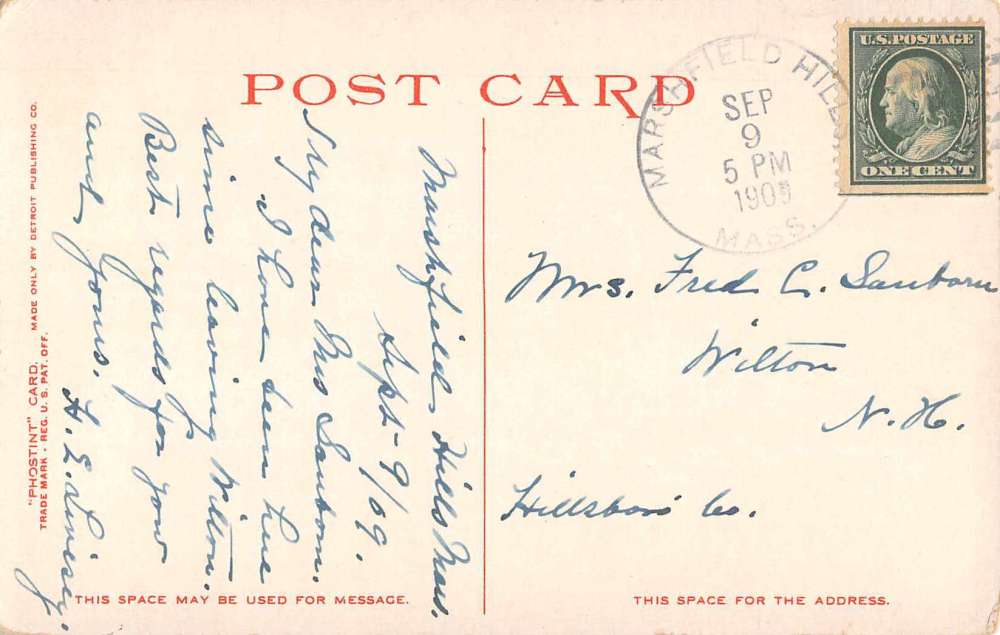 POST CARD
MARSHFIELD HILLS
SEP
9
5 PM
MASS.
U.S. POSTAGE
ONE CENT
Marshfield Hills Mass.
Sept-9/09.
My dear Mrs Sanborn.
I have been here
since leaving Wilton.
Best regards for you
and yours.
H. E. Livesey.
Mrs. Fred C. Sanborn
Wilton
N. H.
Hillsboro Co.
"PHOSTINT" CARD. MADE ONLY BY DETROIT PUBLISHING CO.
TRADE MARK - REG. U. S. PAT. OFF.
THIS SPACE MAY BE USED FOR MESSAGE.
THIS SPACE FOR THE ADDRESS.